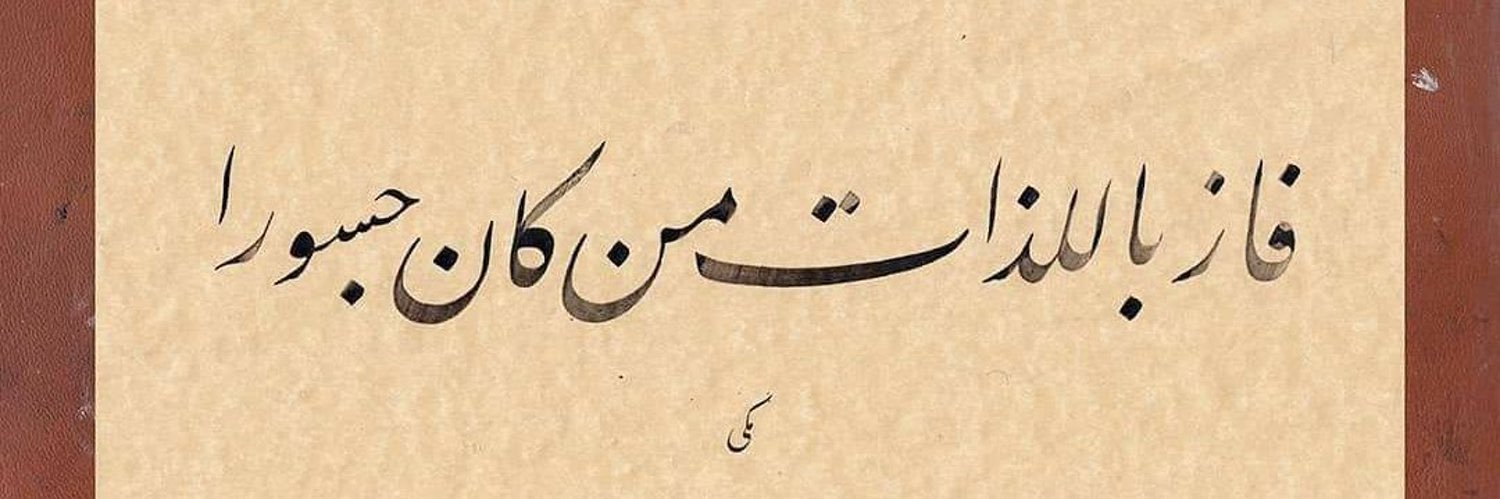 فاز باللذات من كان جسورا
مكي